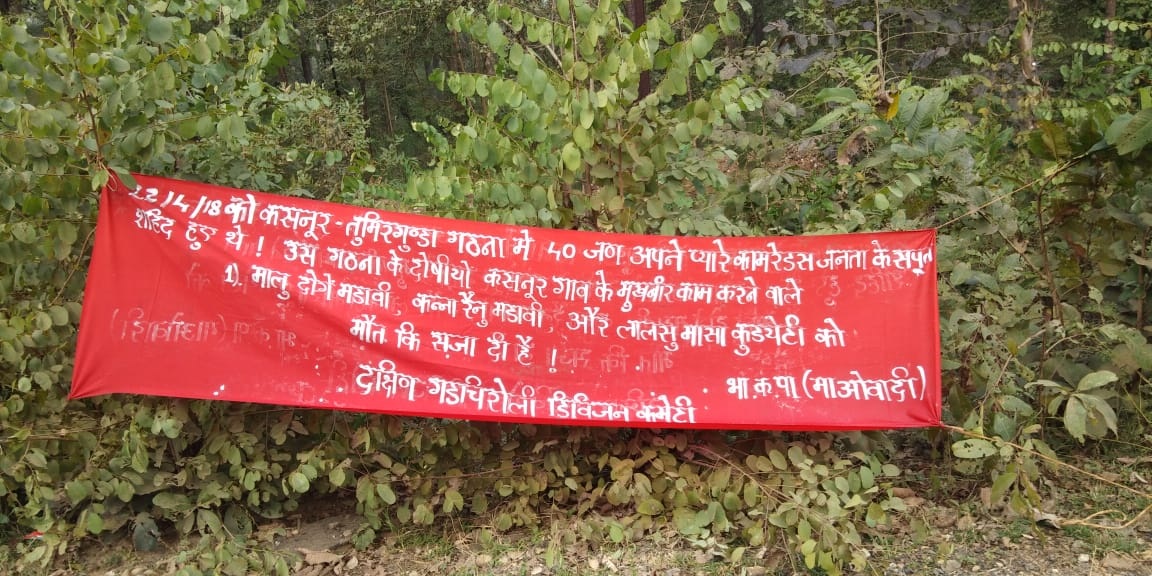 22/4/18 को कसनूर - तुमिरगुण्डा गठना मे 40 जण अपने प्यारे कामरेडस जनता के सपूत
शहिद हुए थे ! उस गठना के दोषीयों कसनूर गाव के मुखबीर काम करने वाले
1). मालु दोगे मडावी, कन्ना रैनु मडावी, और लालसु मासा कुडयेटी को
मौत कि सजा दी हैं !
भा.क.पा (माओवादी)
दक्षिण गडचिरोली डिविजन कमेटी